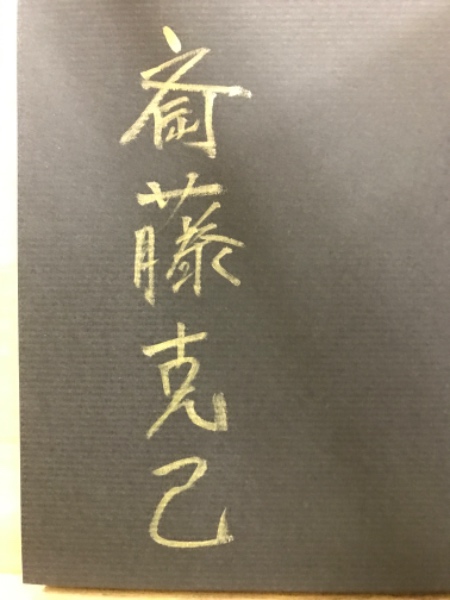 斎藤克己